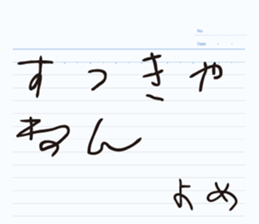 No.
Date . .
すつきや
ねん
よめ